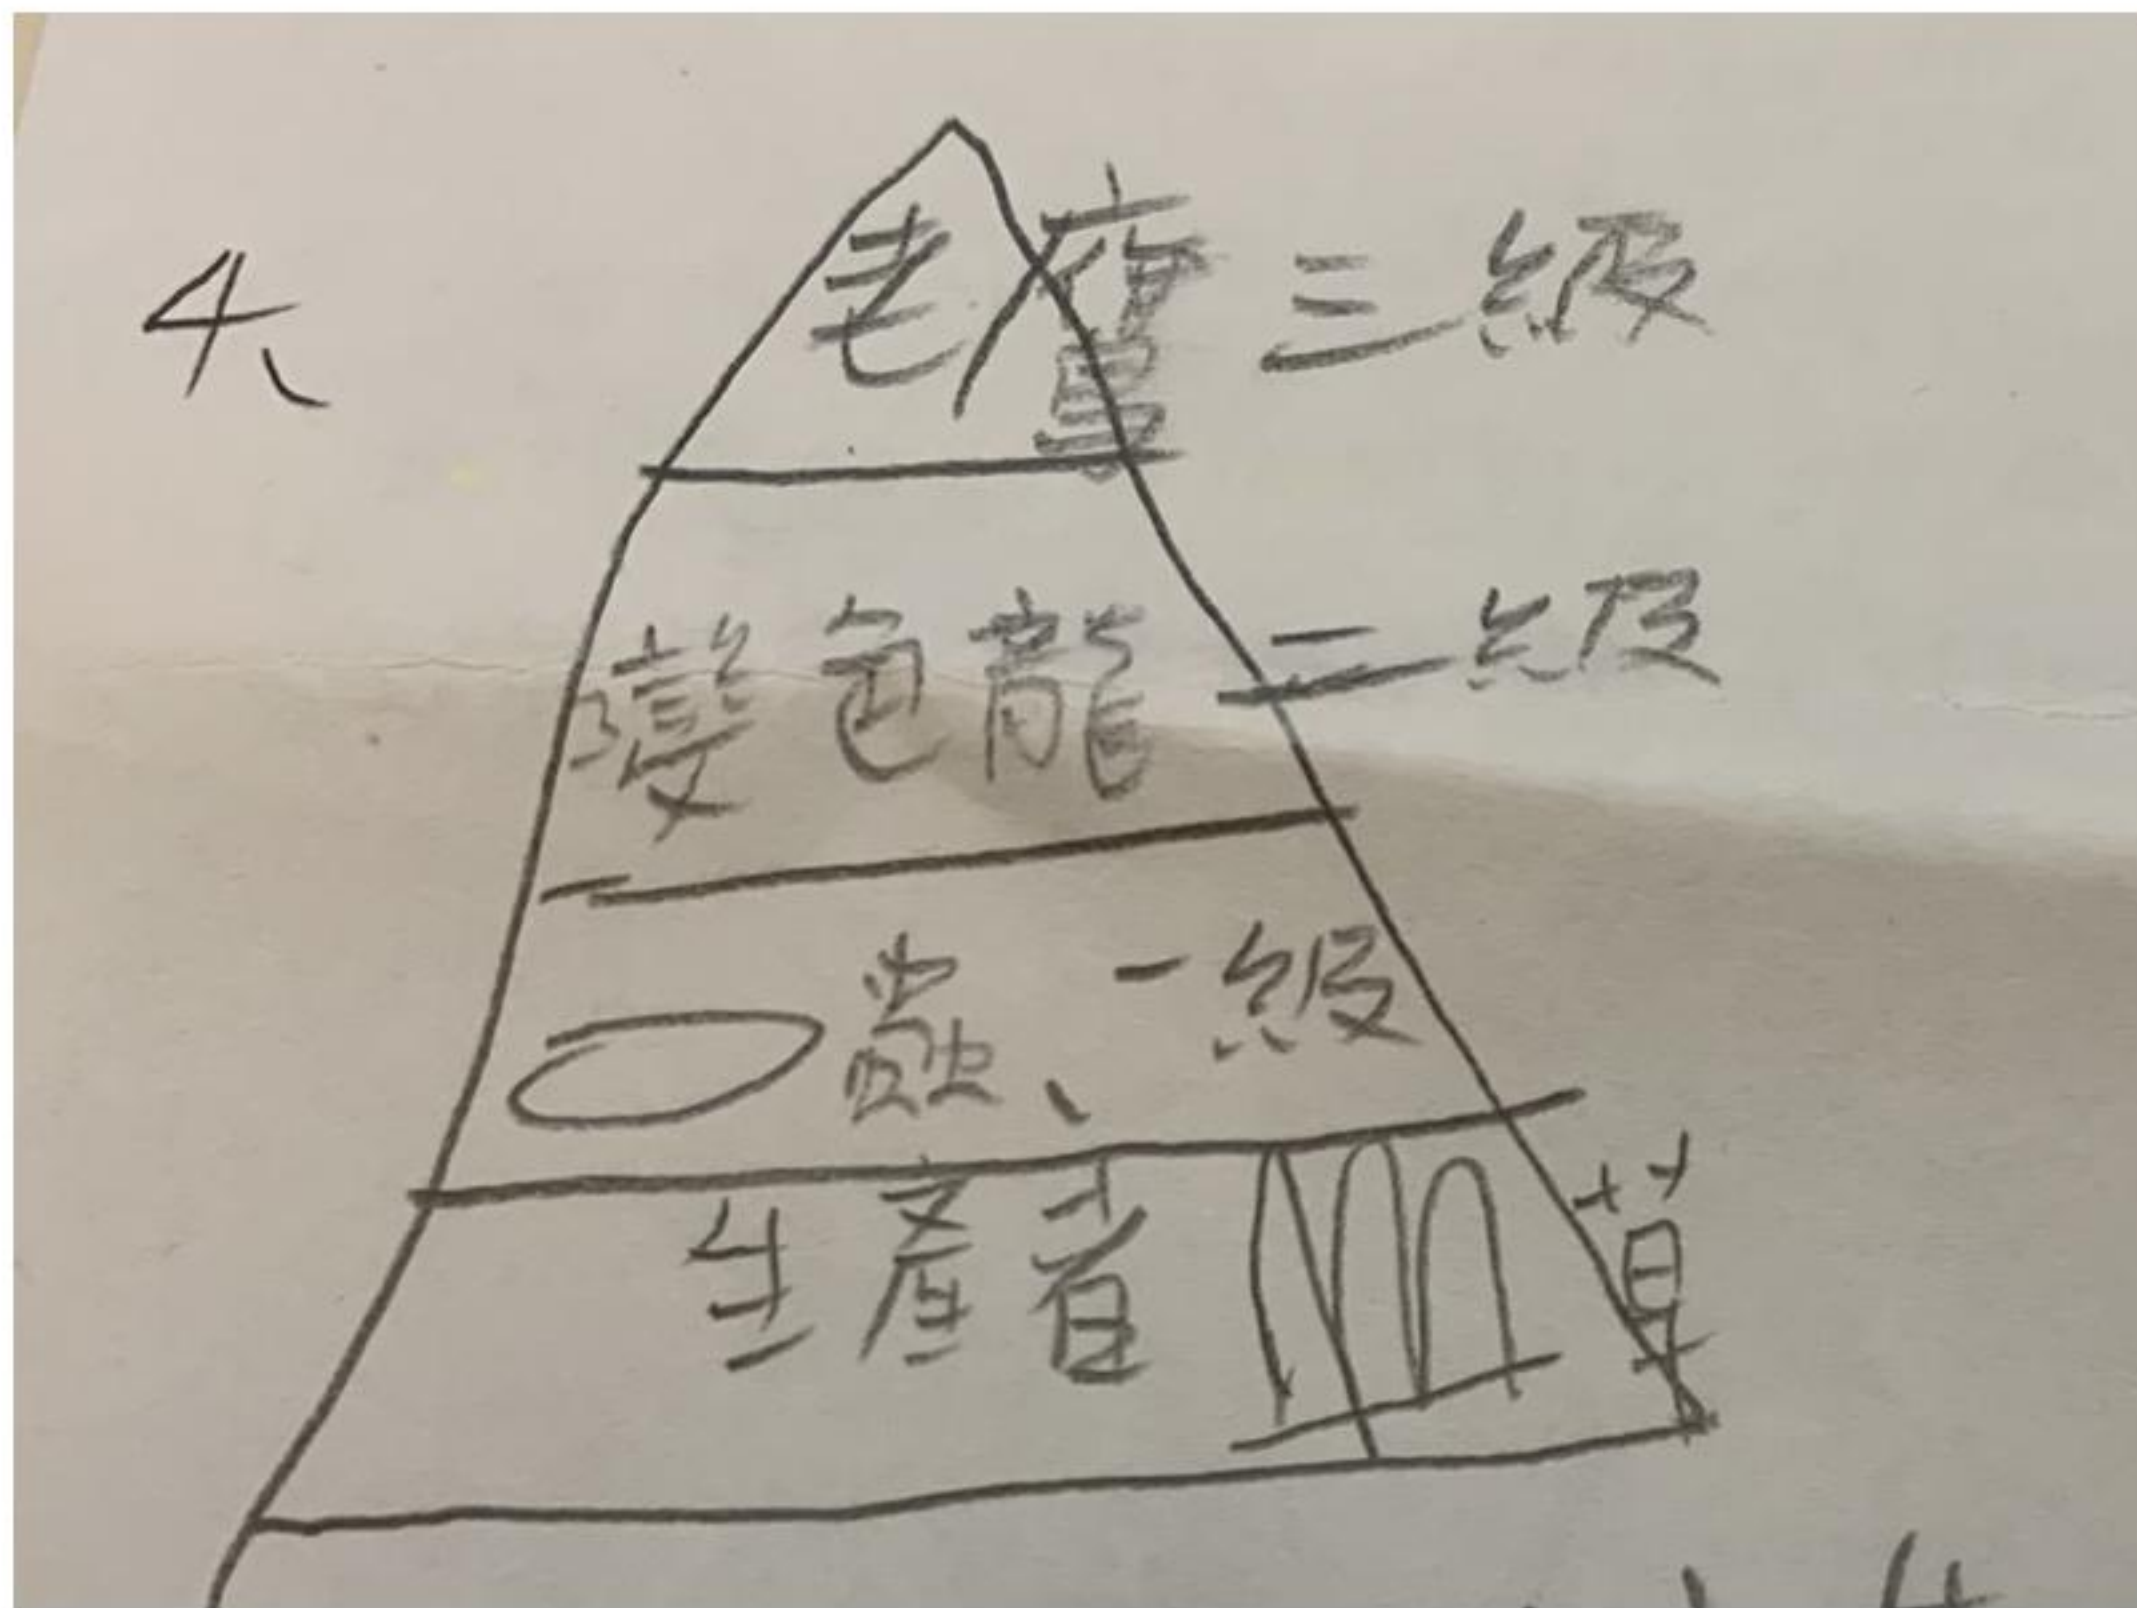 4、
老鷹 三級
變色龍 二級
蟲、一級
生產者 草